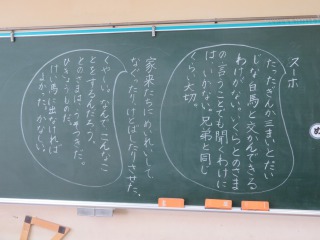 スーホ
たったぎんか三まいとたい
じな白馬と交かんできる
わけがない。いくらとのさま
の言うことでも聞くわけに
は、いかない。兄弟と同じ
くらい大切。
家来たちにめいれいして、
なぐったり、けとばしたりさせた。
くやしい。なんでこんなこ
とをするんだろう。
とのさまは、うそつきだ。
ひきょうものだ。
けい馬に出なければ
よかったかなぁ。